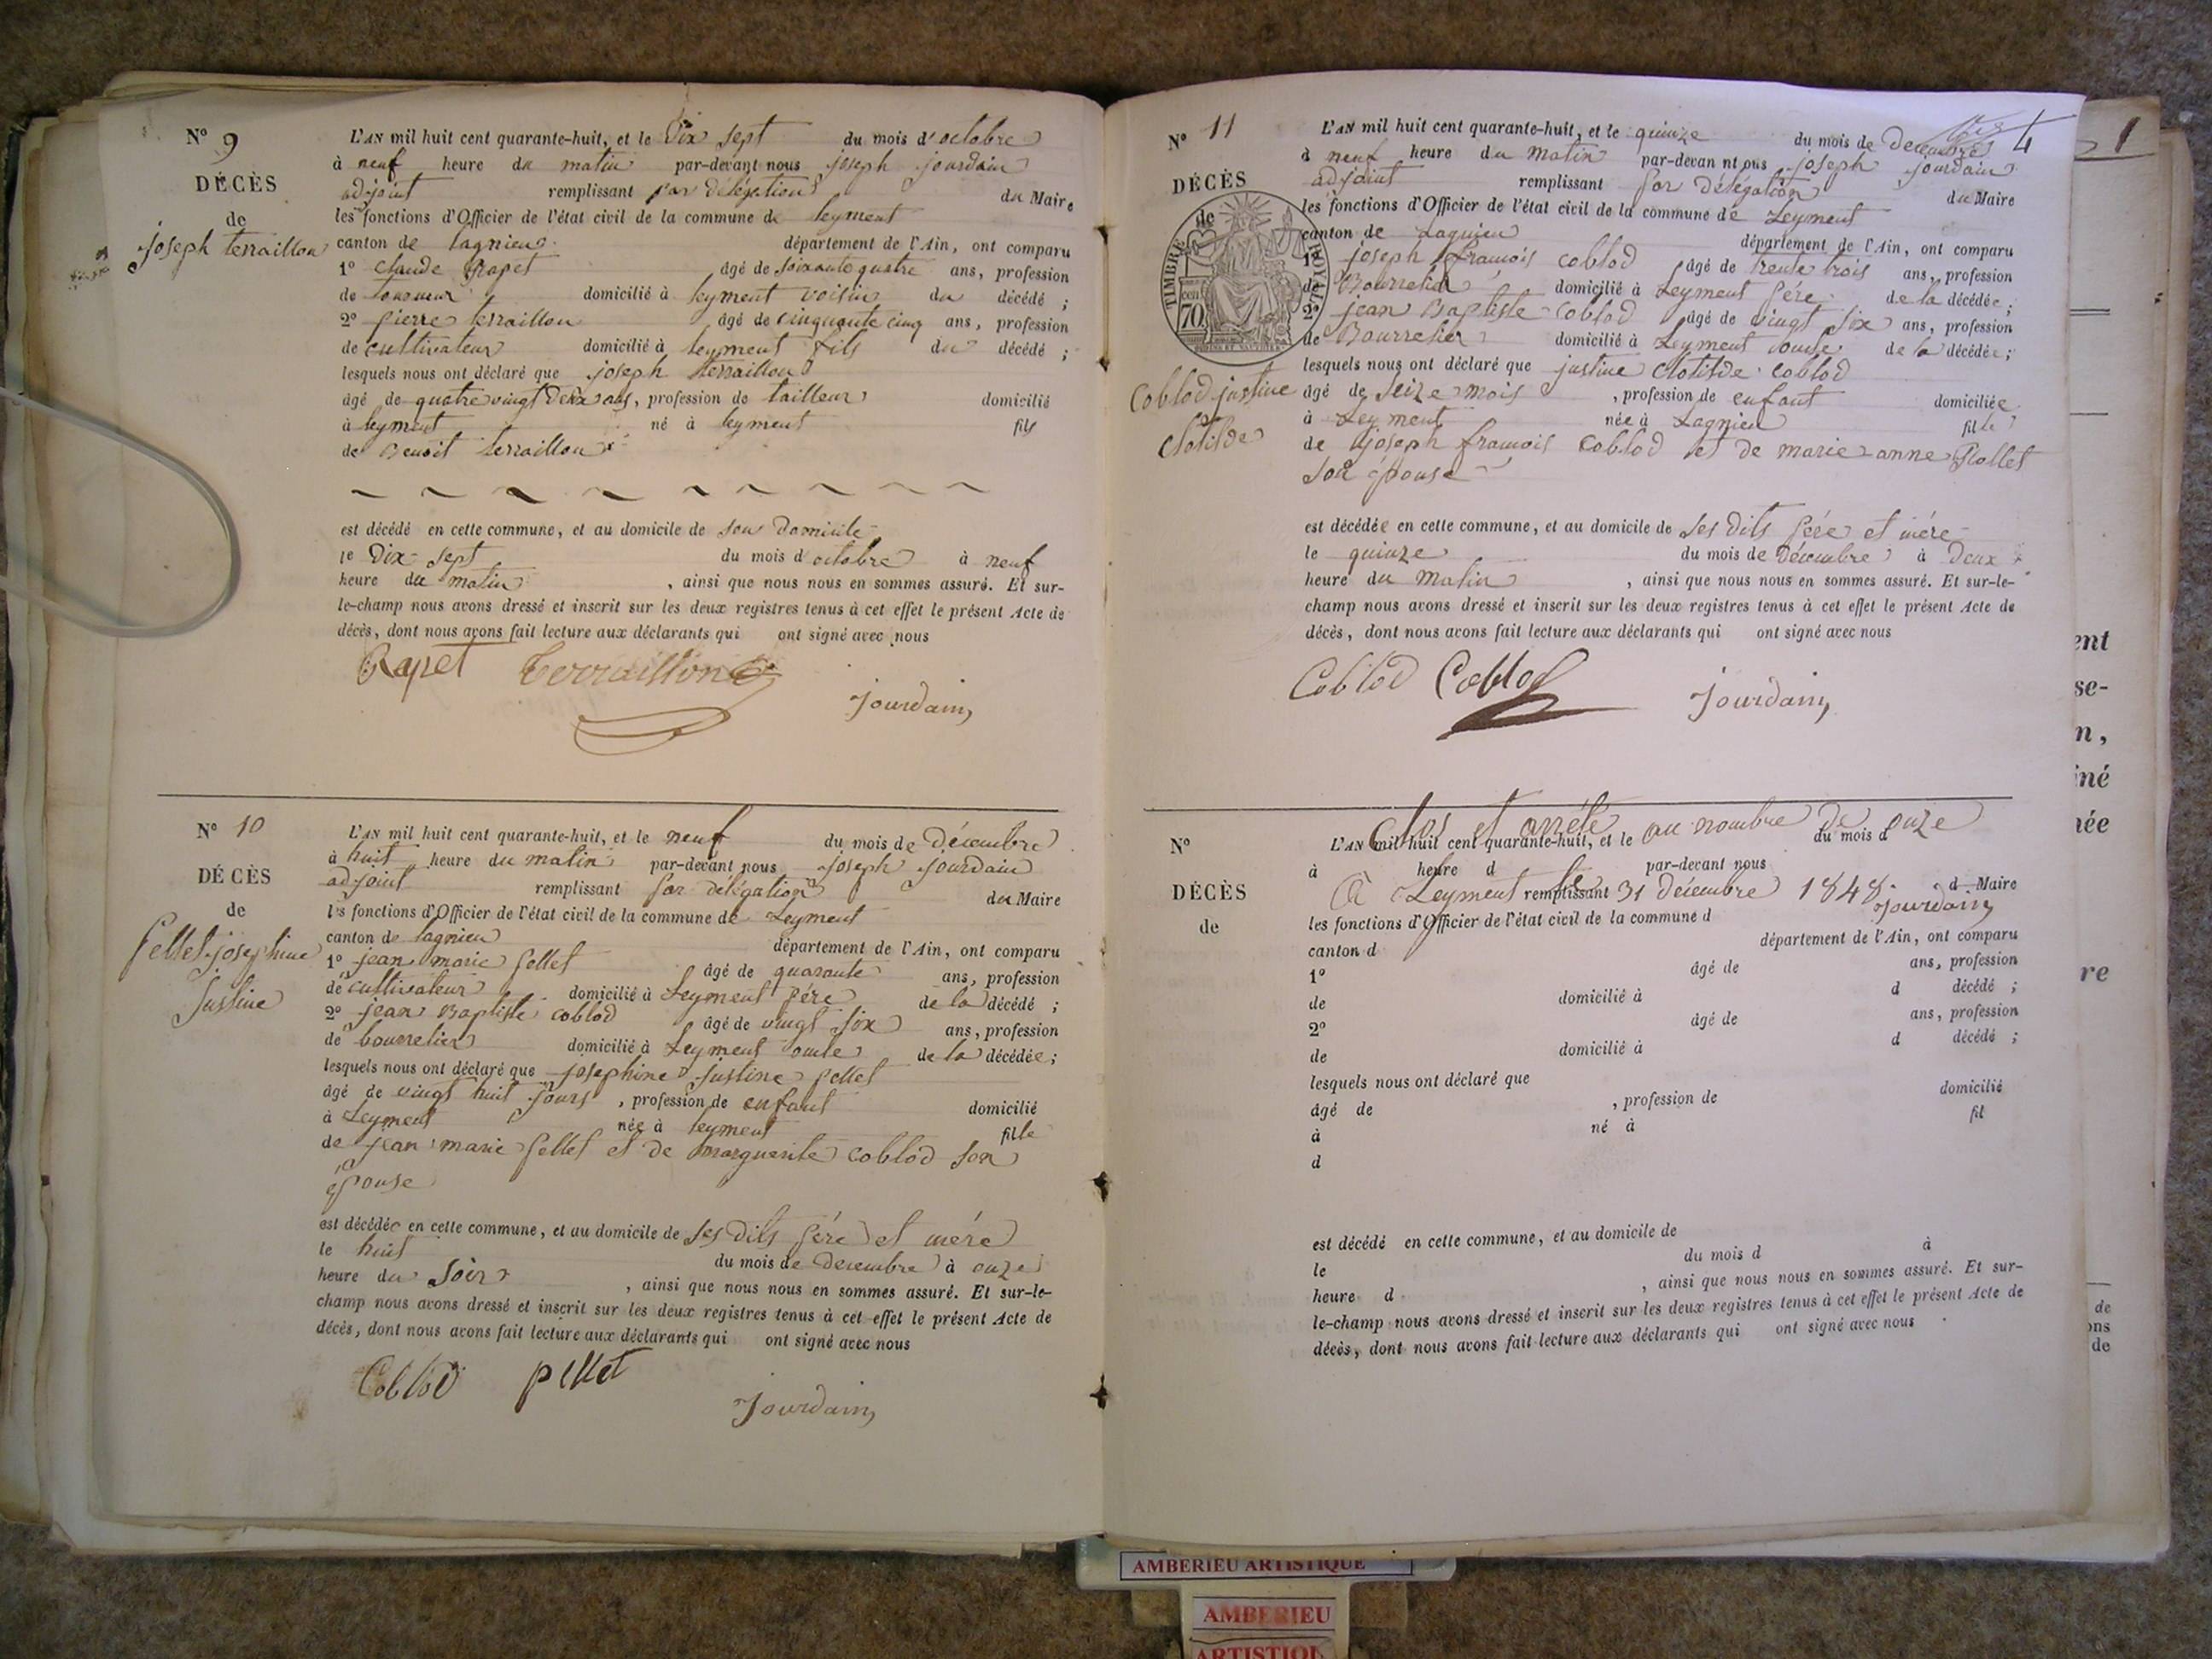 N° 9
DÉCÈS
de
joseph terraillon
L'AN mil huit cent quarante-huit, et le Dix sept du mois d'octobre
à neuf heure du matin par-devant nous joseph jourdain
adjoint remplissant par délégation du Maire
les fonctions d'Officier de l'état civil de la commune de leyment
canton de lagnieu département de l'Ain, ont comparu
1° claude Rapet âgé de soixante quatre ans, profession
de tourneur domicilié à leyment voisin du décédé ;
2° pierre terraillon âgé de cinquante cinq ans, profession
de cultivateur domicilié à leyment fils du décédé ;
lesquels nous ont déclaré que joseph terraillon
âgé de quatre vingt Deux ans, profession de tailleur domicilié
à leyment né à leyment fils
de Benoit terraillon
est décédé en cette commune, et au domicile de son domicile
le Dix sept du mois d octobre à neuf
heure du matin, ainsi que nous nous en sommes assuré. Et sur-
le-champ nous avons dressé et inscrit sur les deux registres tenus à cet effet le présent Acte de
décès, dont nous avons fait lecture aux déclarants qui ont signé avec nous
Rapet Terraillon
jourdain
N° 10
DÉCÈS
de
pellet josephine
justine
L'AN mil huit cent quarante-huit, et le neuf du mois de Décembre
à huit heure du matin par-devant nous joseph jourdain
adjoint remplissant par délégation du Maire
les fonctions d'Officier de l'état civil de la commune de Leyment
canton de lagnieu département de l'Ain, ont comparu
1° jean marie pellet âgé de quarante ans, profession
de cultivateur domicilié à Leyment père de la décédé ;
2° jean Baptiste coblod âgé de vingt six ans, profession
de bourrelier domicilié à Leyment oncle de la décédée ;
lesquels nous ont déclaré que josephine justine pellet
âgé de vingt huit jours, profession de enfant domicilié
à Leyment née à leyment fille
de jean marie pellet et de marguerite coblod son
épouse
est décédée en cette commune, et au domicile de ses dits père et mère
le huit du mois de decembre à onze
heure du soir, ainsi que nous nous en sommes assuré. Et sur-le-
champ nous avons dressé et inscrit sur les deux registres tenus à cet effet le présent Acte de
décès, dont nous avons fait lecture aux déclarants qui ont signé avec nous
Coblod pellet
Jourdain
4
1
N° 11
DÉCÈS
de
TIMBRE ROYAL
70
Coblod justine
clotilde
L'AN mil huit cent quarante-huit, et le quinze du mois de decembre
à neuf heure du matin par-devan nt ous joseph jourdain
adjoint remplissant par délégation du Maire
les fonctions d'Officier de l'état civil de la commune de Leyment
canton de Lagnieu département de l'Ain, ont comparu
1° joseph francois coblod âgé de trente trois ans, profession
de Bourrelier domicilié à Leyment père de la décédée ;
2° jean Baptiste coblod âgé de vingt six ans, profession
de Bourrelier domicilié à Leyment oncle de la décédée ;
lesquels nous ont déclaré que justine clotilde coblod
âgé de seize mois, profession de enfant domiciliée
à Leyment née à Lagnieu fille
de joseph francois coblod et de marie anne Rollet
son épouse
est décédée en cette commune, et au domicile de ses dits père et mère
le quinze du mois de Décembre à Deux
heure du matin, ainsi que nous nous en sommes assuré. Et sur-le-
champ nous avons dressé et inscrit sur les deux registres tenus à cet effet le présent Acte de
décès, dont nous avons fait lecture aux déclarants qui ont signé avec nous
Coblod Coblod
jourdain
Clos et arrêté au nombre de onze
à Leyment le 31 decembre 1848.
jourdain
N°
DÉCÈS
de
L'AN mil huit cent quarante-huit, et le du mois d
à heure d par-devant nous
remplissant d Maire
les fonctions d'Officier de l'état civil de la commune d
canton d département de l'Ain, ont comparu
1° âgé de ans, profession
de domicilié à d décédé ;
2° âgé de ans, profession
de domicilié à d décédé ;
lesquels nous ont déclaré que
âgé de , profession de domicilié
à né à fil
d
est décédé en cette commune, et au domicile de
le du mois d à
heure d , ainsi que nous nous en sommes assuré. Et sur-
le-champ nous avons dressé et inscrit sur les deux registres tenus à cet effet le présent Acte de
décès, dont nous avons fait lecture aux déclarants qui ont signé avec nous
ent
se-
n,
né
née
re
de
ons
de
AMBERIEU ARTISTIQUE
AMBERIEU
ARTISTIQU